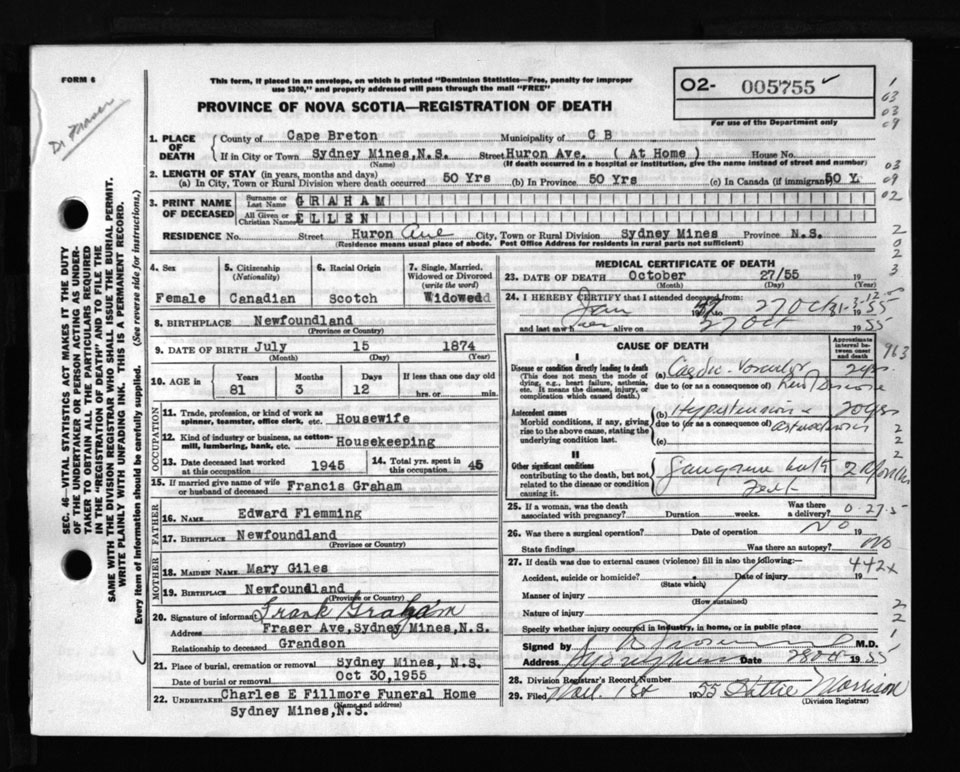 FORM 6
This form, if placed in an envelope, on which is printed "Dominion Statistics—Free, penalty for improper
use $300," and properly addressed will pass through the mail "FREE"
PROVINCE OF NOVA SCOTIA—REGISTRATION OF DEATH
02- 005755 ✓
For use of the Department only
Dr Fraser
SEC. 46—VITAL STATISTICS ACT MAKES IT THE DUTY
OF THE UNDERTAKER OR PERSON ACTING AS UNDER-
TAKER TO OBTAIN ALL THE PARTICULARS REQUIRED
IN THE "REGISTRATION OF DEATH" AND TO FILE THE
SAME WITH THE DIVISION REGISTRAR WHO SHALL ISSUE THE BURIAL PERMIT.
WRITE PLAINLY WITH UNFADING INK. THIS IS A PERMANENT RECORD.
Every item of Information should be carefully supplied. (See reverse side for instructions.)
1. PLACE OF DEATH County of Cape Breton Municipality of C B
If in City or Town Sydney Mines,N.S. Street Huron Ave. ( At Home ) House No.
(Name) (If death occurred in a hospital or institution, give the name instead of street and number)
2. LENGTH OF STAY (in years, months and days)
(a) In City, Town or Rural Division where death occurred 50 Yrs (b) In Province 50 Yrs (c) In Canada (if immigrant) 50 Y
3. PRINT NAME OF DECEASED Surname or Last Name GRAHAM
All Given or Christian Names ELLEN
RESIDENCE No. Street Huron Ave City, Town or Rural Division Sydney Mines Province N.S.
(Residence means usual place of abode. Post Office Address for residents in rural parts not sufficient)
4. Sex Female
5. Citizenship (Nationality) Canadian
6. Racial Origin Scotch
7. Single, Married, Widowed or Divorced (write the word) Widowed
8. BIRTHPLACE Newfoundland
(Province or Country)
9. DATE OF BIRTH July 15 1874
(Month) (Day) (Year)
10. AGE IN Years Months Days If less than one day
81 3 12 hrs. or min.
OCCUPATION
11. Trade, profession, or kind of work as spinner, teamster, office clerk, etc. Housewife
12. Kind of industry or business, as cotton-mill, lumbering, bank, etc. Housekeeping
13. Date deceased last worked at this occupation 1945 14. Total yrs. spent in this occupation 45
15. If married give name of wife or husband of deceased Francis Graham
FATHER
16. NAME Edward Flemming
17. BIRTHPLACE Newfoundland
(Province or Country)
MOTHER
18. MAIDEN NAME Mary Giles
19. BIRTHPLACE Newfoundland
(Province or Country)
20. Signature of informant Frank Graham
Address Fraser Ave,Sydney Mines,N.S.
Relationship to deceased Grandson
21. Place of burial, cremation or removal Sydney Mines, N.S.
Date of burial or removal Oct 30,1955
22. UNDERTAKER Charles E Fillmore Funeral Home
(Name and address)
Sydney Mines,N.S.
MEDICAL CERTIFICATE OF DEATH
23. DATE OF DEATH October 27/55 19
(Month) (Day)
24. I HEREBY CERTIFY that I attended deceased from:
Jan 27 Oct 1955
and last saw her alive on 27 Oct 1955
CAUSE OF DEATH
Approximate interval between onset and death
I
Disease or condition directly leading to death
(This does not mean the mode of dying, e.g., heart failure, asthenia, etc. It means the disease, injury, or complication which caused death.)
(a) Cardio-Vascular 2 yrs
due to (or as a consequence of) Renal Disease
Antecedent causes
Morbid conditions, if any, giving rise to the above cause, stating the underlying condition last.
(b) Hypertension & 20 yrs
due to (or as a consequence of)
(c)
II
Other significant conditions
contributing to the death, but not related to the disease or condition causing it.
Gangrene both Feet 2 Months
25. If a woman, was the death associated with pregnancy? Duration weeks. Was there a delivery?
26. Was there a surgical operation? Date of operation No 19
State findings Was there an autopsy? No
27. If death was due to external causes (violence) fill in also the following:— 442x
Accident, suicide or homicide? Date of injury 19
(State which)
Manner of injury
(How sustained)
Nature of injury
Specify whether injury occurred in industry, in home, or in public place
Signed by M.D.
Address Sydney Mines Date 28 Oct 1955
28. Division Registrar's Record Number
29. Filed Nov. 1st 1955 Hattie Morrison
(Division Registrar)